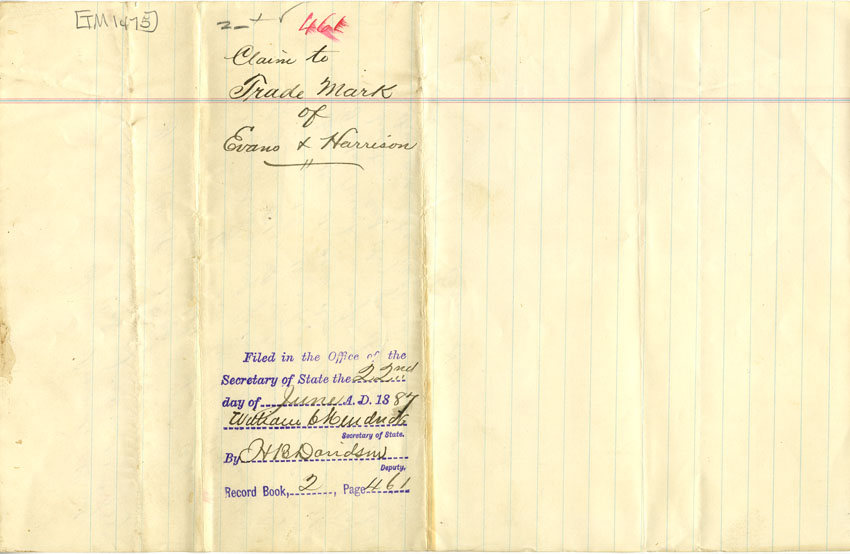 [TM 1475]
2 - + √ 461
Claim to
Trade Mark
of
Evans & Harrison
Filed in the Office of the
Secretary of State the 22nd
day of June A. D. 1887
William C Hendricks
Secretary of State.
By H B Davidson
Deputy.
Record Book, 2, Page 461